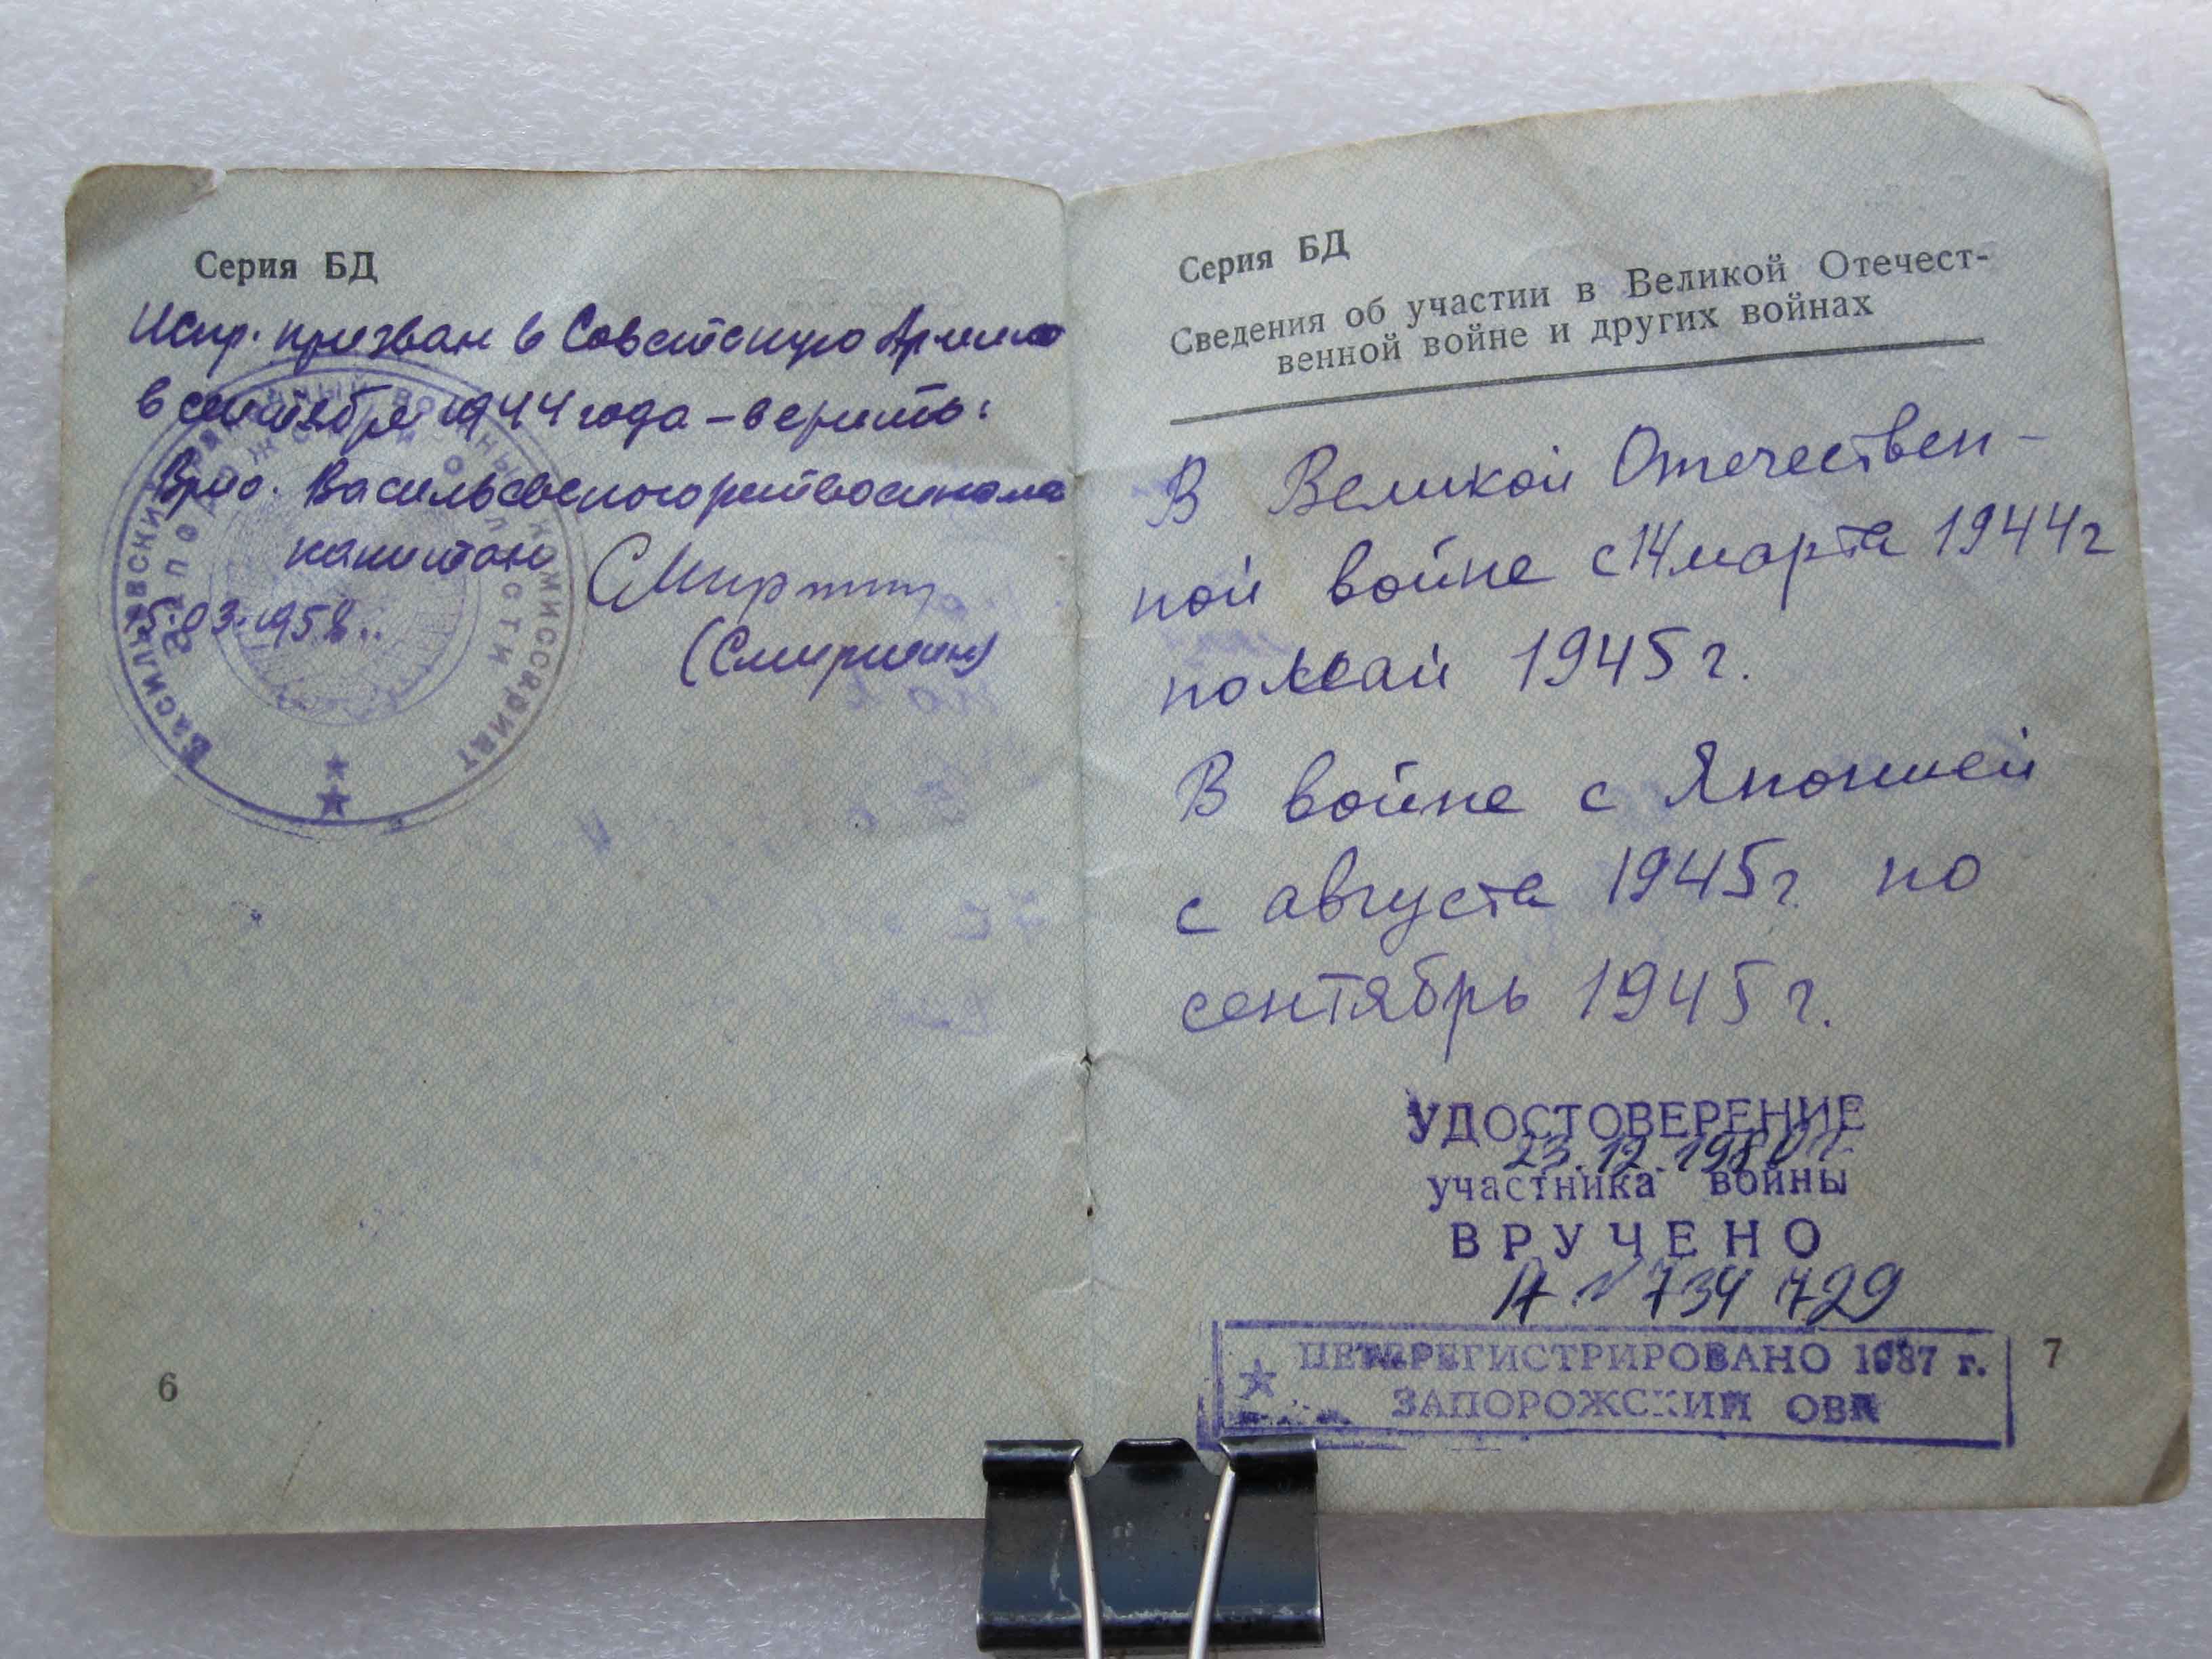 Серия БД
Испр. призван в Советскую Армию
в сентябре 1944 года – верить:
Врио. Васильевского райвоенкома
капитан
5.03.1958..
(Смирнин)
Васильевский районный военный комиссариат
Запорожской области
6
Серия БД
Сведения об участии в Великой Отечест-
венной войне и других войнах
В Великой Отечествен-
ной войне с 14 марта 1944г
по май 1945 г.
В войне с Японией
с августа 1945г. по
сентябрь 1945 г.
УДОСТОВЕРЕНИЕ
23.12.1980г.
участника войны
ВРУЧЕНО
А № 734 729
ПЕРЕРЕГИСТРИРОВАНО 1987 г.
ЗАПОРОЖСКИЙ ОВК
7